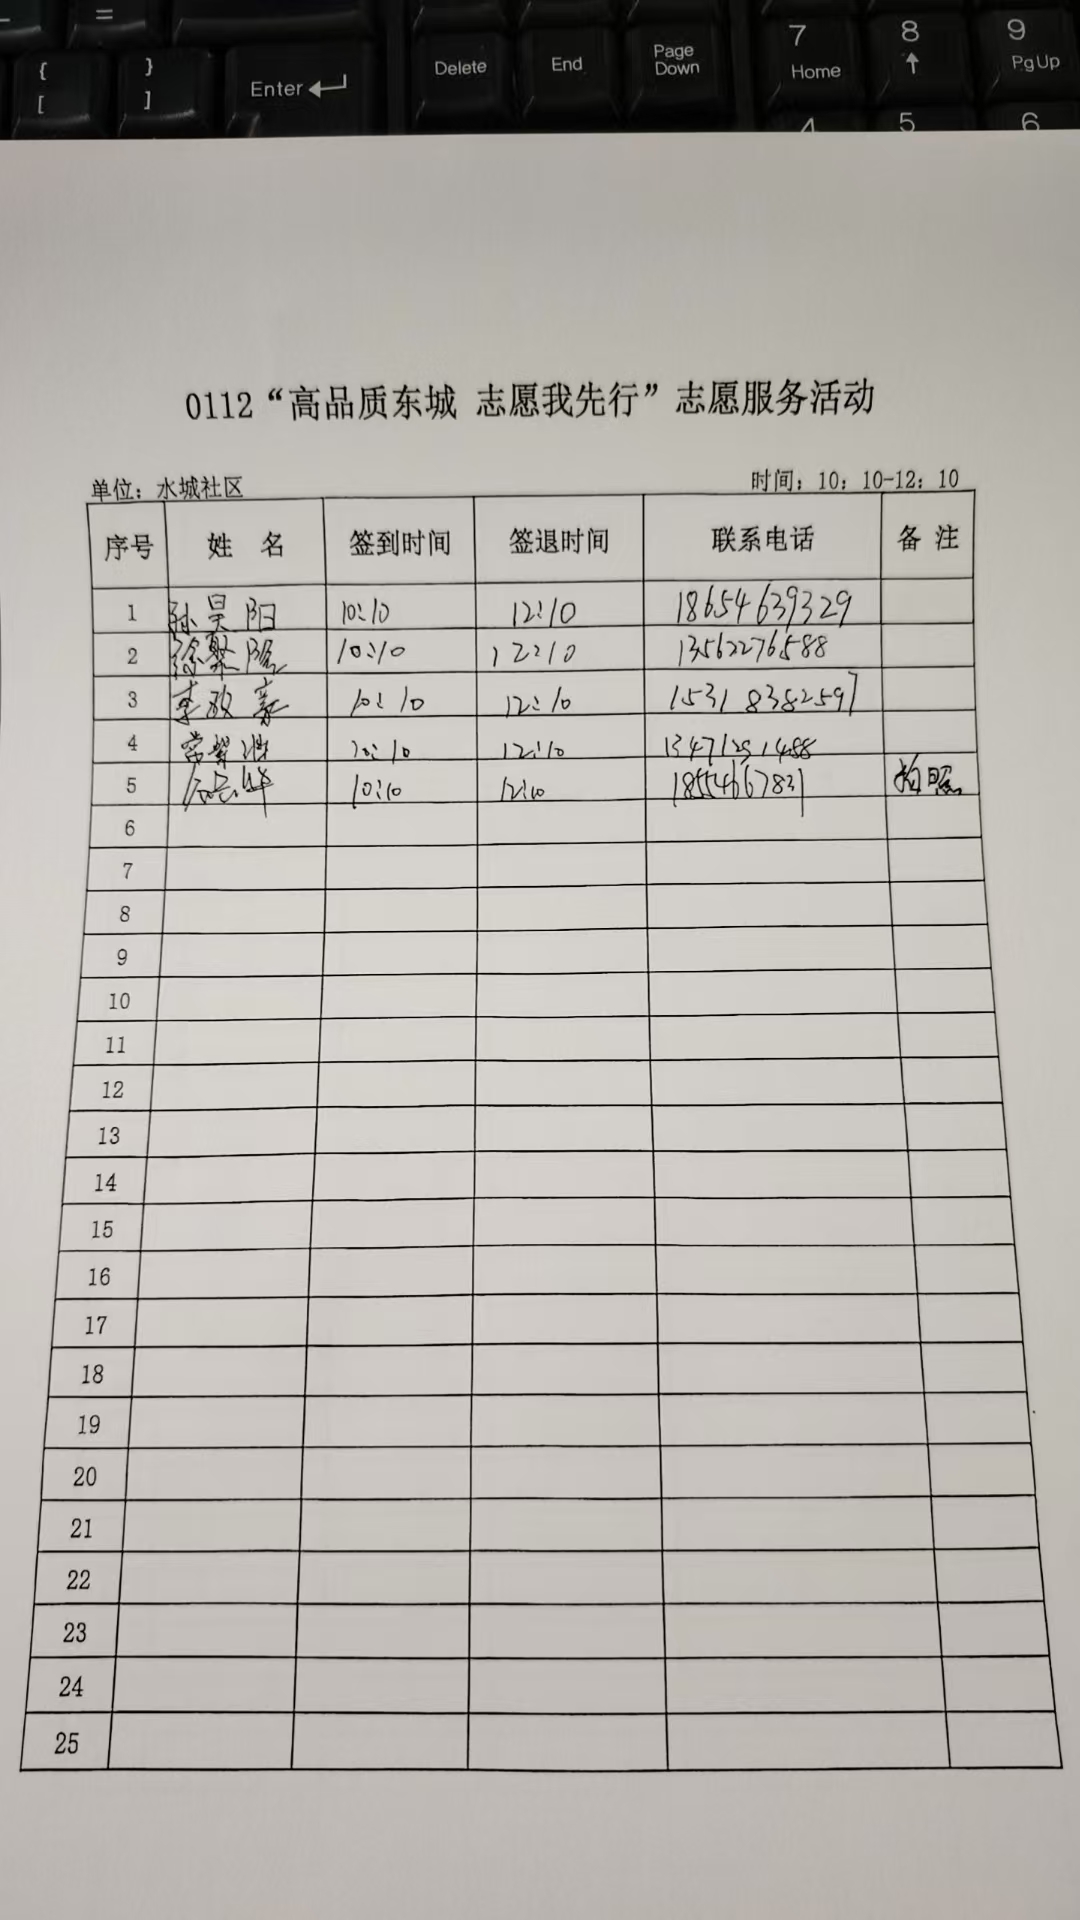 =
{ } Enter Delete End Page Down 7 Home 8 9 PgUp
[ ] 4 5 6
0112“高品质东城 志愿我先行”志愿服务活动
单位：水城社区 时间：10：10-12：10
序号 姓 名 签到时间 签退时间 联系电话 备 注
1 孙昊阳 10:10 12:10 18654639329
2 徐聚 10:10 12:10 13562276588
3 李 10:10 12:10 15318382597
4 常 10:10 12:10
5 10:10 12:10 拍照
6
7
8
9
10
11
12
13
14
15
16
17
18
19
20
21
22
23
24
25